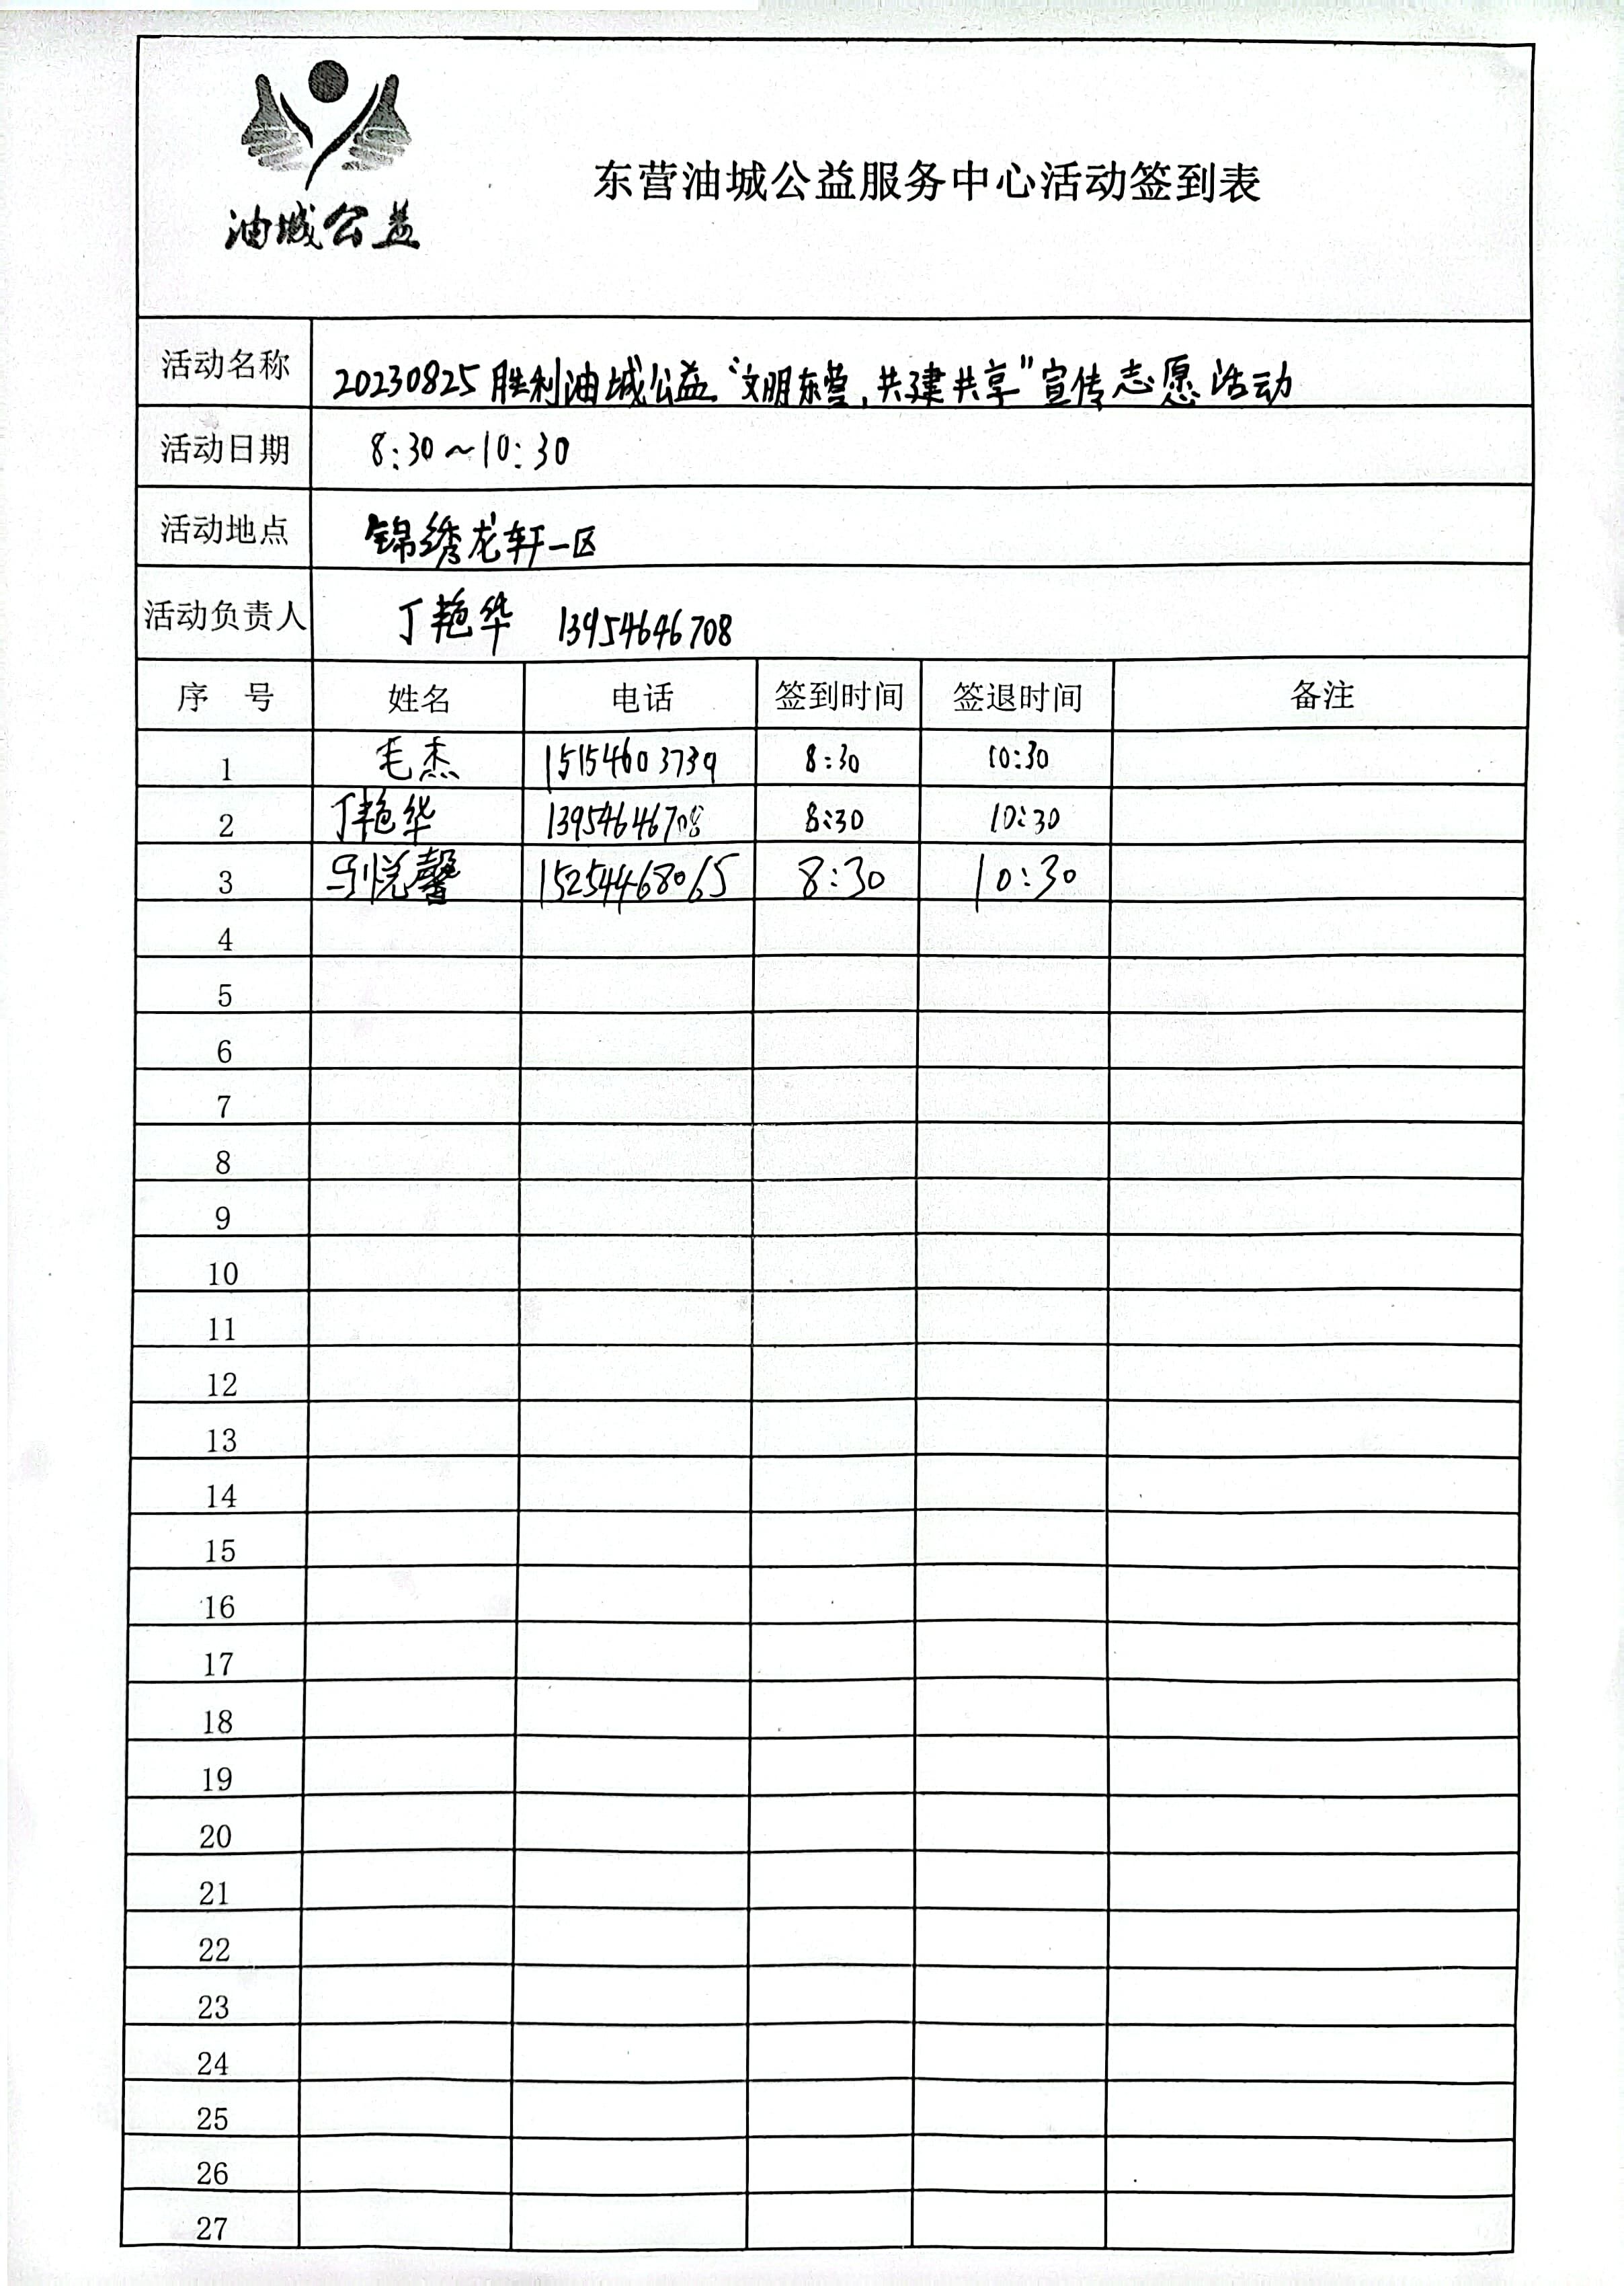 油城公益
东营油城公益服务中心活动签到表
活动名称 20230825胜利油城公益“文明东营,共建共享”宣传志愿活动
活动日期 8:30~10:30
活动地点 锦绣龙轩一区
活动负责人 丁艳华 13954646708
序 号 姓名 电话 签到时间 签退时间 备注
1 毛杰 15154603739 8:30 10:30
2 丁艳华 13954646708 8:30 10:30
3 马悦馨 15254468065 8:30 10:30
4
5
6
7
8
9
10
11
12
13
14
15
16
17
18
19
20
21
22
23
24
25
26
27